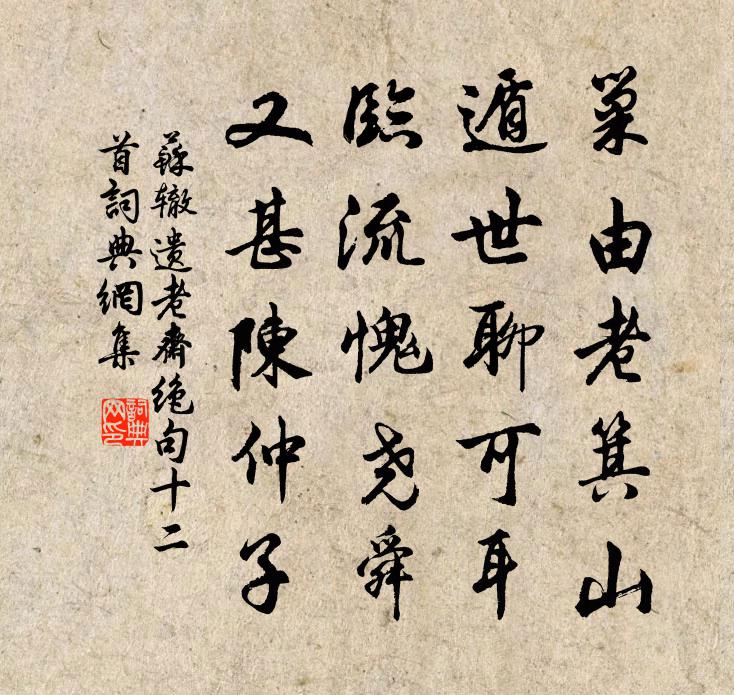 巢由老箕山
遁世聊可耳
臨流愧尧舜
又甚陳仲子
蘇辙遗老齋绝句十二
首詞典網集
詞典网印